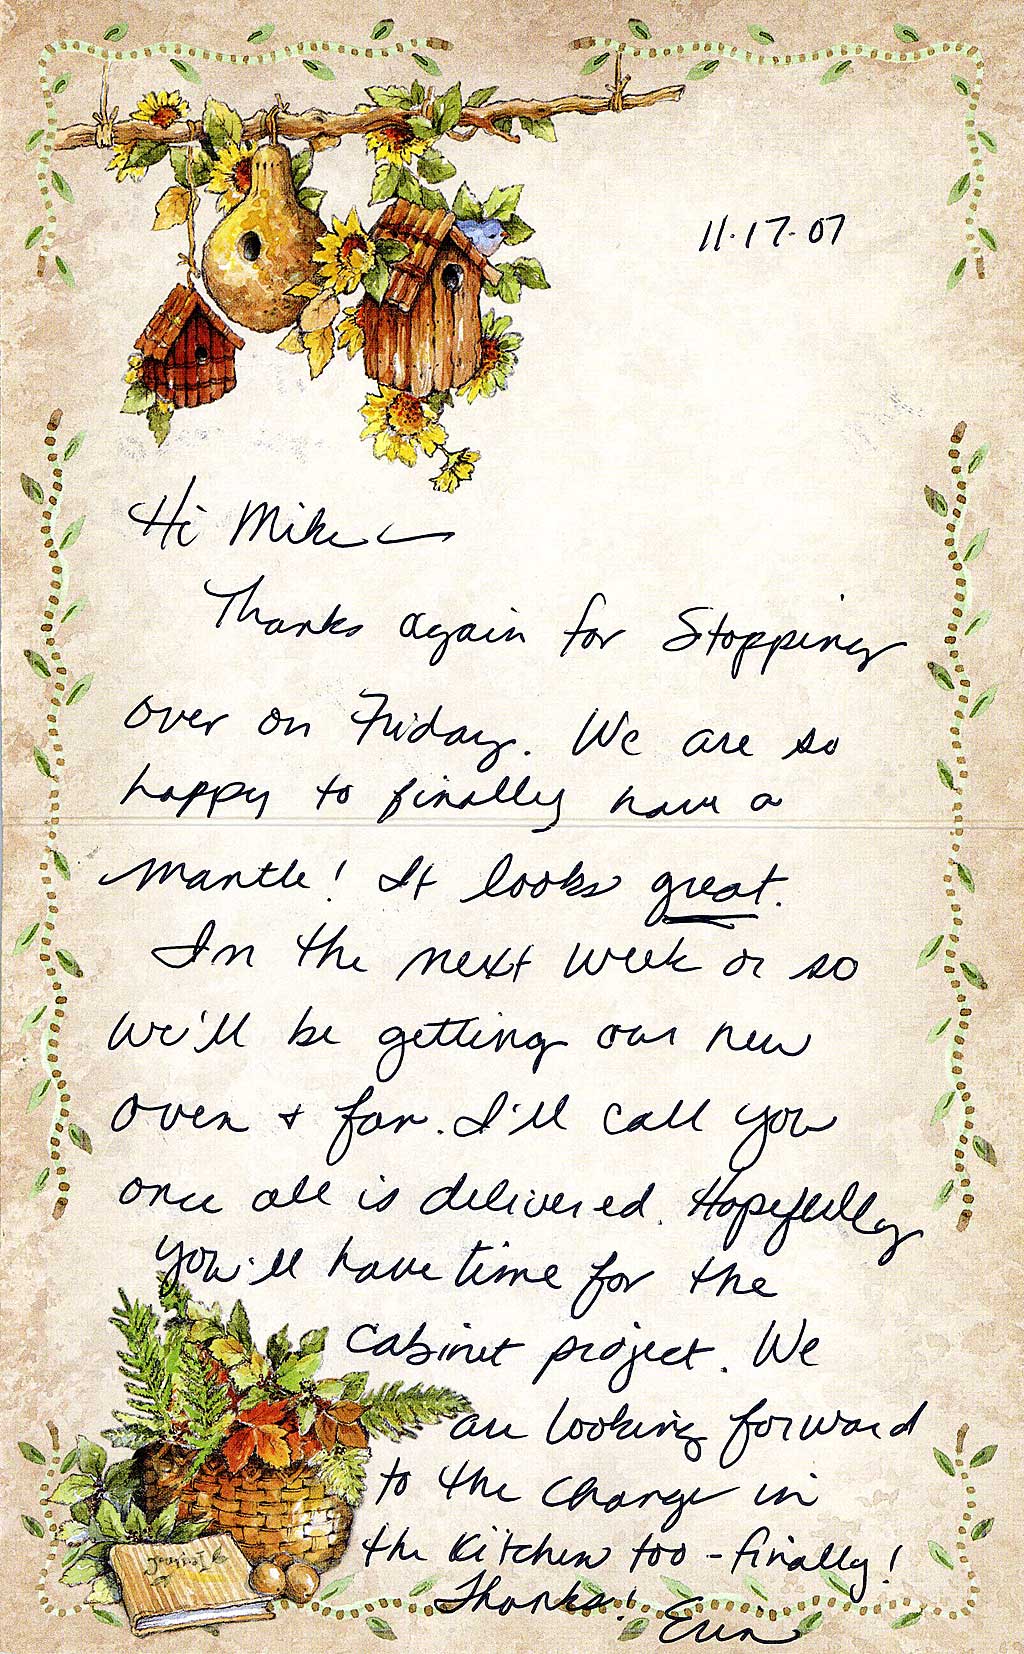 11·17·07
Hi Mike –
Thanks again for Stopping
over on Friday. We are so
happy to finally have a
mantle! It looks great.
In the next week or so
we'll be getting our new
oven + fan. I'll call you
once all is delivered. Hopefully
you'll have time for the
Cabinet project. We
are looking forward
to the change in
the kitchen too - finally!
Thanks!
Erin
Journal